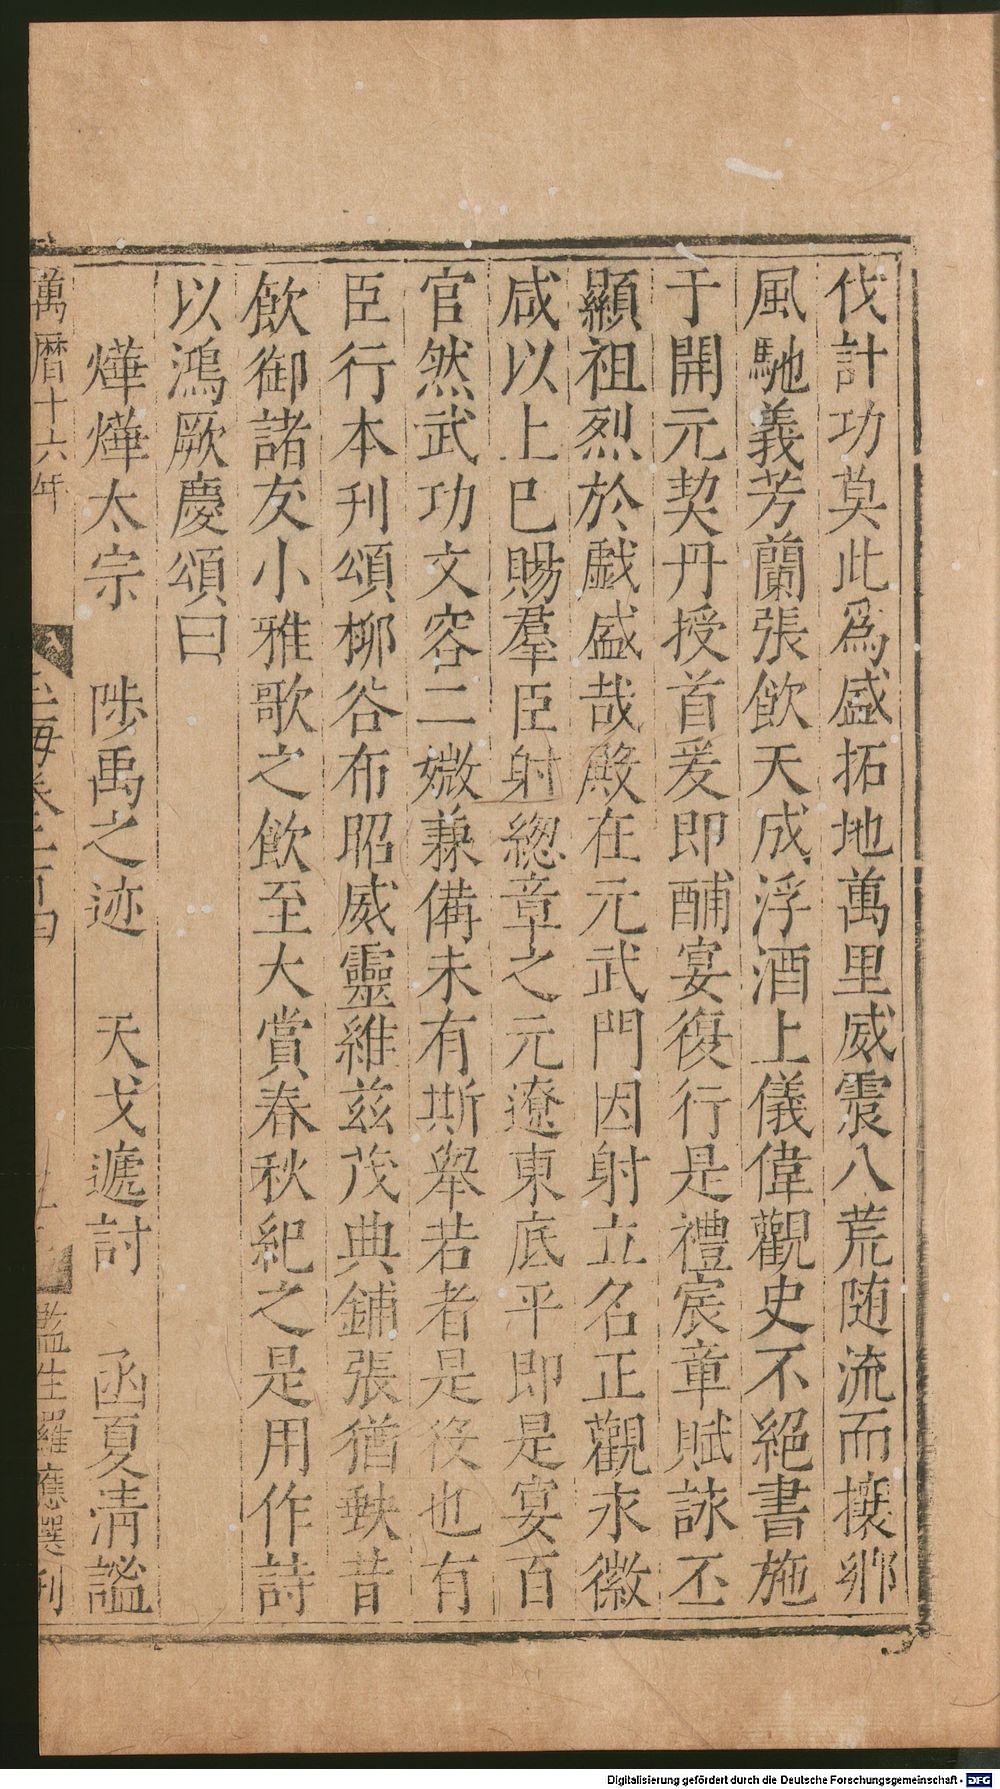 伐計功莫此爲盛拓地萬里威震八荒随流而攘郷
風馳義芳蘭張飲天成浮酒上儀偉觀史不絕書施
于開元契丹授首爰即酺宴復行是禮宸章賦詠丕
顯祖烈於戯盛哉殿在元武門因射立名正觀永徽
咸以上巳賜羣臣射緫章之元遼東底平即是宴百
官然武功文容二媺兼備未有斯舉若者是役也有
臣行本刋頌柳谷布昭威靈維兹茂典鋪張猶缺昔
飲御諸友小雅歌之飲至大賞春秋紀之是用作詩
以鴻厥慶頌曰
燁燁太宗 陟禹之迹 天戈遞討 函夏清謐
萬曆十六年 玉海卷二百四 監生羅應選刊
Digitalisierung gefördert durch die Deutsche Forschungsgemeinschaft - DFG